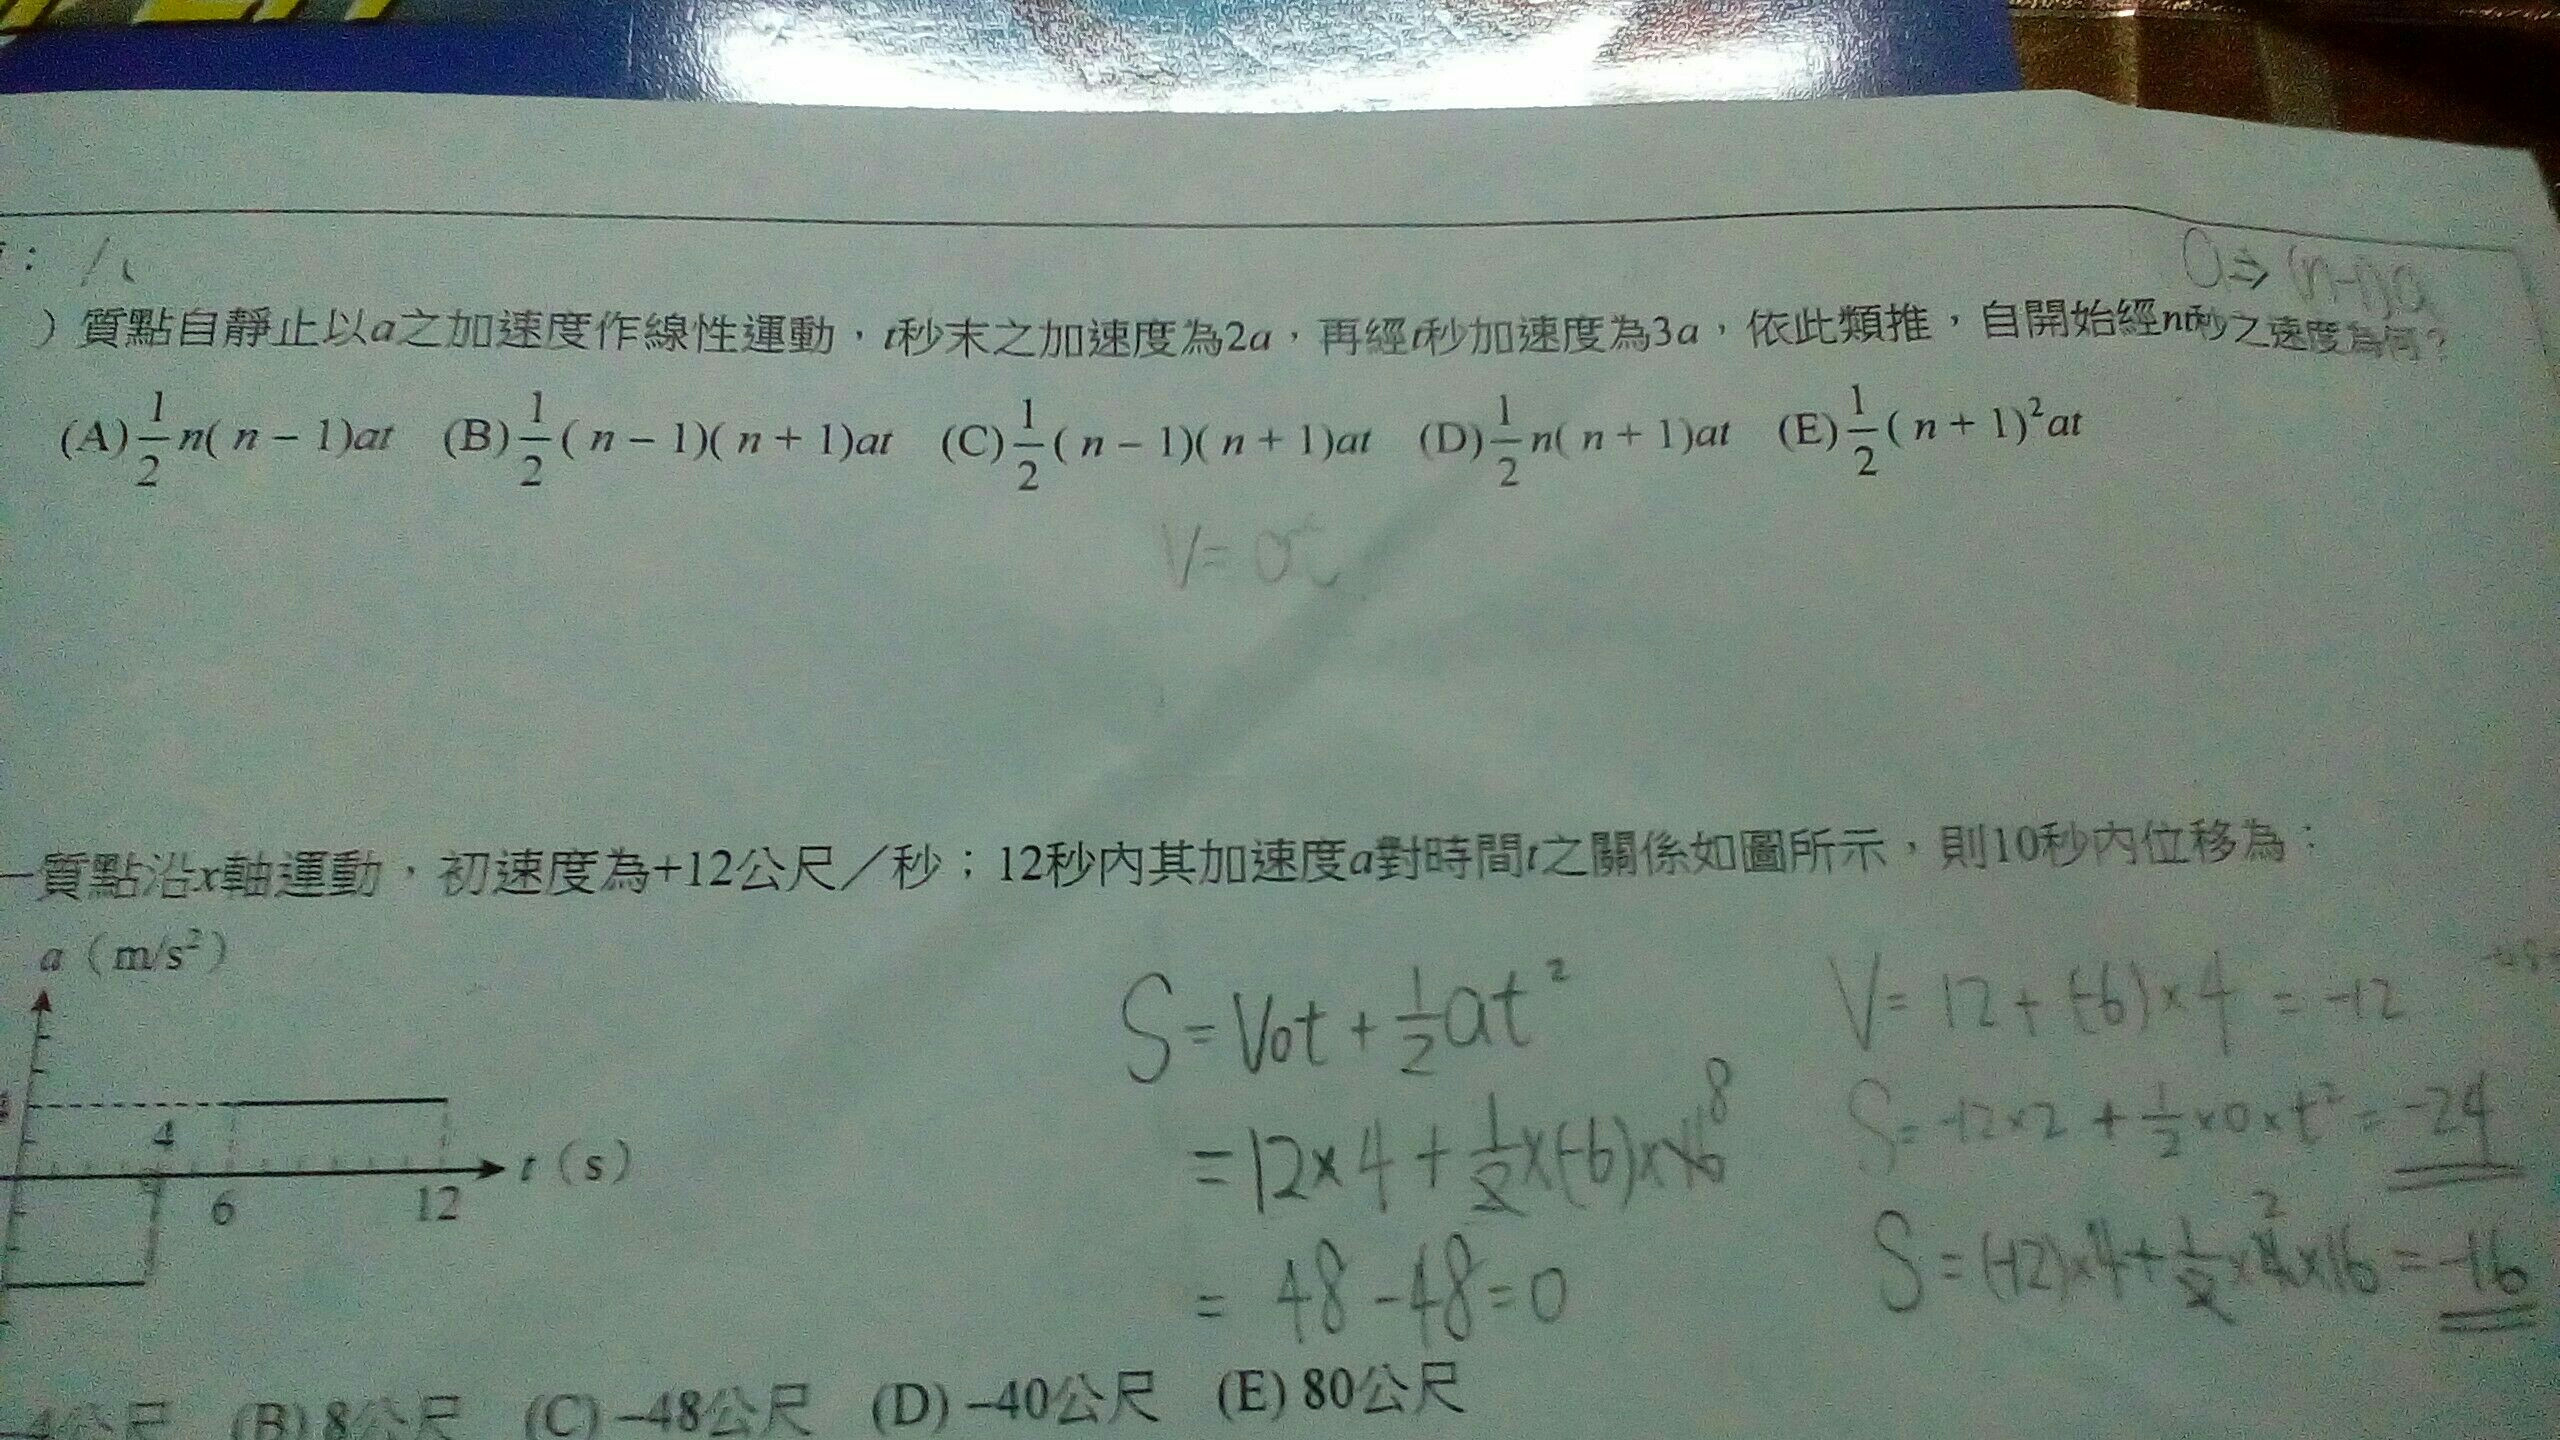 a ⇒ (n-1)a
)質點自靜止以a之加速度作線性運動，t秒末之加速度為2a，再經t秒加速度為3a，依此類推，自開始經nt秒之速度為何？
(A) 1/2 n( n – 1)at (B) 1/2 ( n – 1)( n + 1)at (C) 1/2 ( n – 1)( n + 1)at (D) 1/2 n( n + 1)at (E) 1/2 ( n + 1)²at
V = at
一質點沿x軸運動，初速度為+12公尺／秒；12秒內其加速度a對時間t之關係如圖所示，則10秒內位移為：
a（m/s²）
4
t（s）
6 12
S = V₀t + 1/2 at²
= 12×4 + 1/2 ×(-6)×16 8
= 48 - 48 = 0
V = 12 + (-6)×4 = -12
S = -12×2 + 1/2 ×0×t² = -24
S = (-12)×4 + 1/2 ×4×16 = -16
2
4公尺 (B) 8公尺 (C) –48公尺 (D) –40公尺 (E) 80公尺